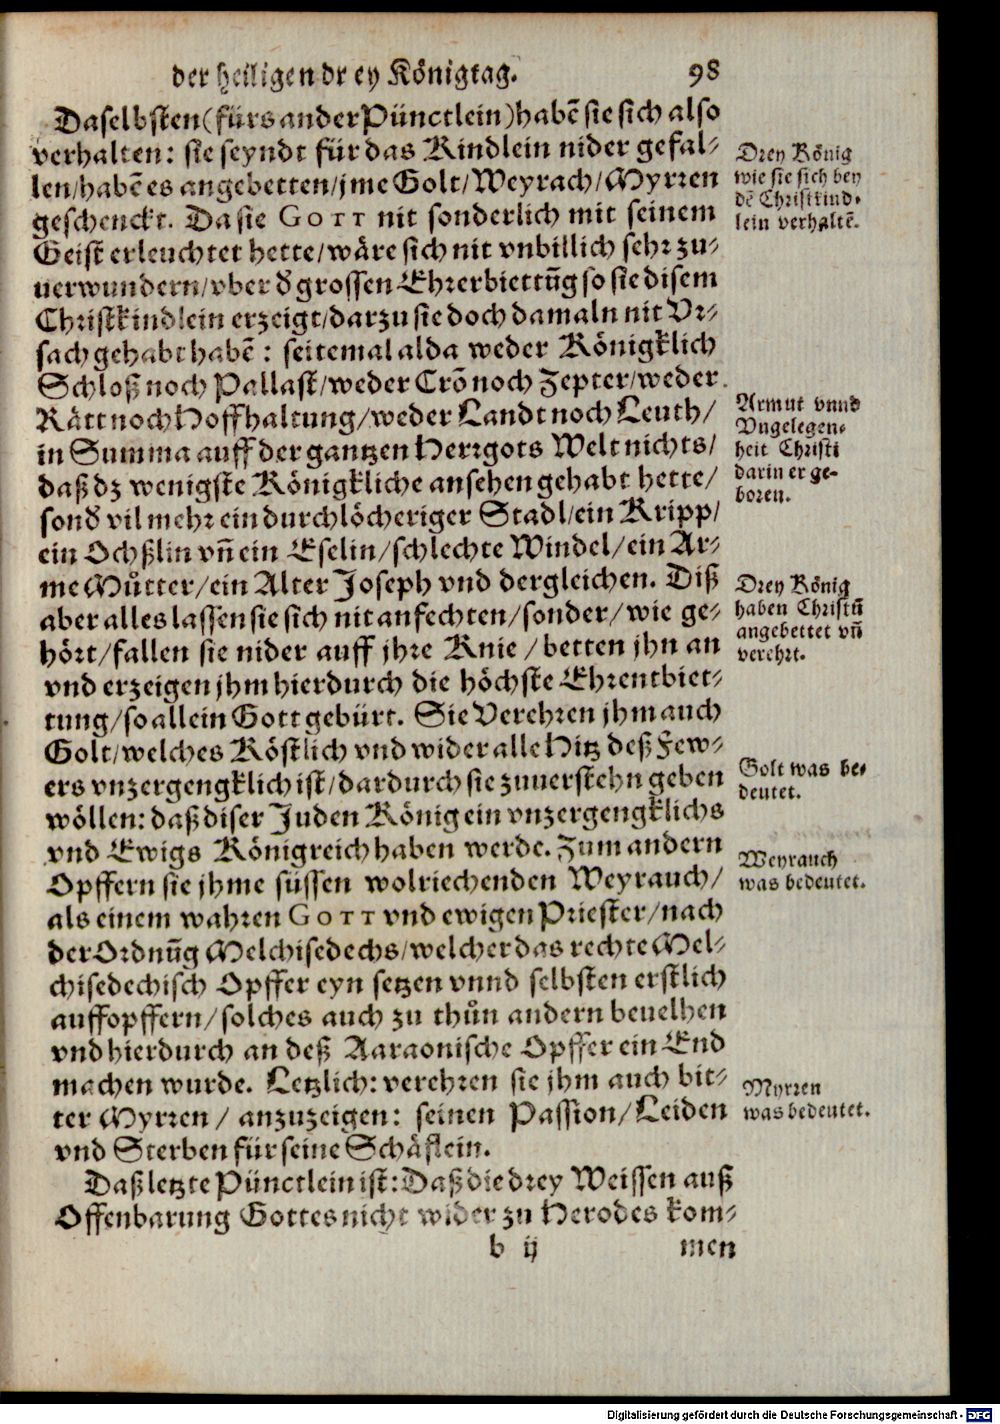 der heiligen drey Königtag. 98
Daselbsten (fürs ander Pünctlein) habē sie sich also
verhalten: sie seyndt für das Kindlein nider gefal-
len/habē es angebetten/jme Golt/Weyrach/Myrren
geschenckt. Da sie GOTT nit sonderlich mit seinem
Geist erleuchtet hette/wäre sich nit vnbillich sehr zu-
uerwundern/vber d̕ grossen Ehrerbiettūg so sie disem
Christkindlein erzeigt/darzu sie doch damaln nit Vr-
sach gehabt habē: seitemal alda weder Königklich
Schloß noch Pallast/weder Crō noch Zepter/weder
Rätt noch Hoffhaltung/weder Landt noch Leuth/
in Summa auff der gantzen Herrgots Welt nichts/
daß dz wenigste Königkliche ansehen gehabt hette/
sond̕ vil mehr ein durchlöcheriger Stadl/ein Kripp/
ein Ochßlin vn̄ ein Eselin/schlechte Windel/ein Ar-
me Můtter/ein Alter Joseph vnd dergleichen. Diß
aber alles lassen sie sich nit anfechten/sonder/wie ge-
hört/fallen sie nider auff jhre Knie/betten jhn an
vnd erzeigen jhm hierdurch die höchste Ehrentbiet-
tung/so allein Gott gebürt. Sie Verehren jhm auch
Golt/welches Köstlich vnd wider alle Hitz deß Few-
ers vnzergengklich ist/dardurch sie zuuerstehn geben
wöllen: daß diser Juden König ein vnzergengklichs
vnd Ewigs Königreich haben werde. Zum andern
Opffern sie jhme süssen wolriechenden Weyrauch/
als einem wahren GOTT vnd ewigen Priester/nach
der Ordnūg Melchisedechs/welcher das rechte Mel-
chisedechisch Opffer eyn setzen vnnd selbsten erstlich
auffopffern/solches auch zu thůn andern beuelhen
vnd hierdurch an deß Aaraonische Opffer ein End
machen wurde. Letzlich: verehren sie jhm auch bit-
ter Myrren/anzuzeigen: seinen Passion/Leiden
vnd Sterben für seine Schäflein.
Daß letzte Pünctlein ist: Daß die drey Weissen auß
Offenbarung Gottes nicht wider zu Herodes kom-
b ij men
Drey König
wie sie sich bey
dē Christkind-
lein verhaltē.
Armut vnnd
Vngelegen-
heit Christi
darin er ge-
boren.
Drey König
haben Christū
angebettet vn̄
verehrt.
Golt was be-
deutet.
Weyrauch
was bedeutet.
Myrren
was bedeutet.
Digitalisierung gefördert durch die Deutsche Forschungsgemeinschaft - DFG